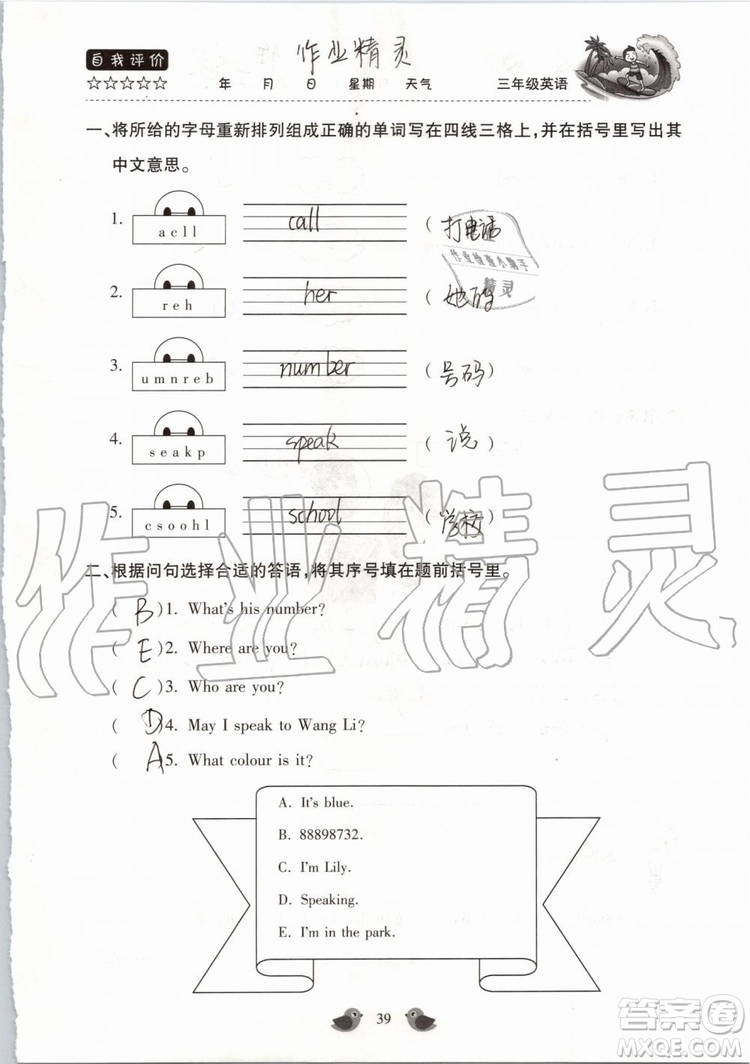 自我评价
作业精灵
☆☆☆☆☆ 年 月 日 星期 天气 三年级英语
一、将所给的字母重新排列组成正确的单词写在四线三格上,并在括号里写出其
中文意思。
1. acll call (打电话)
作业检查小帮手
精灵
2. reh her (她的)
3. umnreb number (号码)
4. seakp speak (说)
5. csoohl school (学校)
二、根据问句选择合适的答语,将其序号填在题前括号里。
( B )1. What's his number?
( E )2. Where are you?
( C )3. Who are you?
( D )4. May I speak to Wang Li?
( A )5. What colour is it?
A. It's blue.
B. 88898732.
C. I'm Lily.
D. Speaking.
E. I'm in the park.
39
作业精灵
答案圈
MXQE.COM